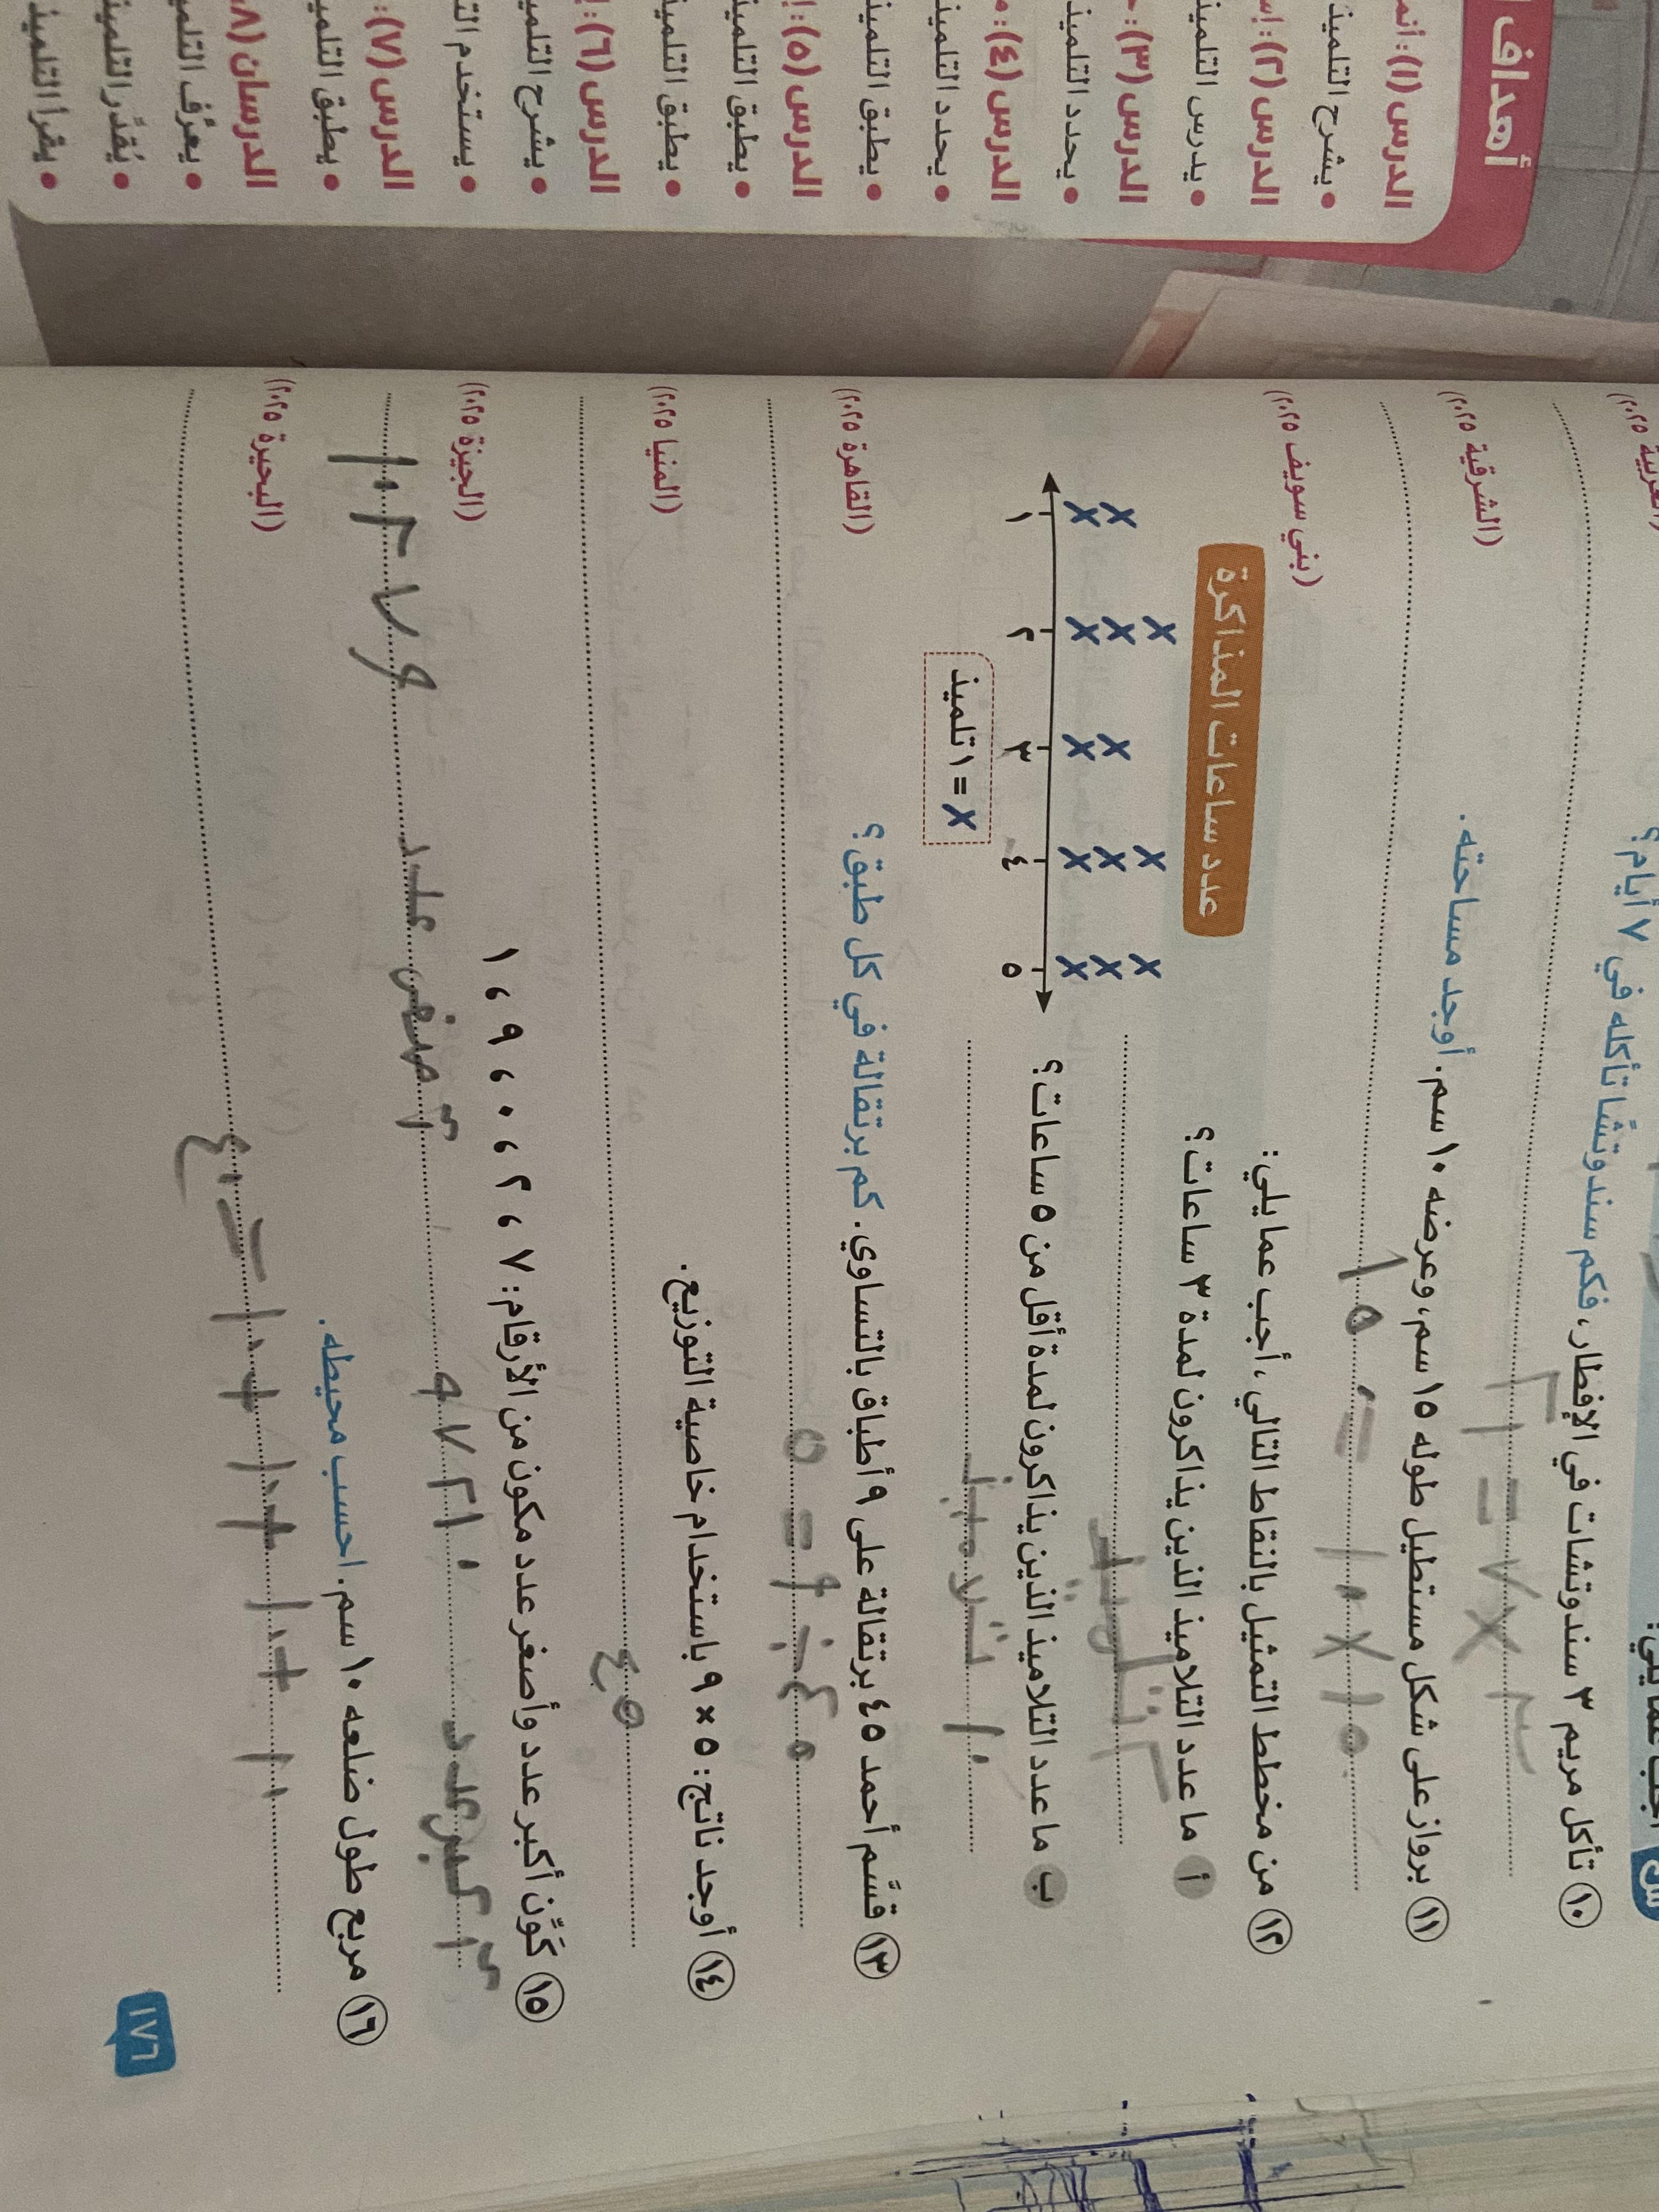 س أجب عما يلي:
١٠ تأكل مريم ٣ سندوتشات في الإفطار، فكم سندوتشًا تأكله في ٧ أيام؟ (الغربية ٢٠٢٥)
٣ × ٧ = ٢١
١١ برواز على شكل مستطيل طوله ١٥ سم، وعرضه ١٠ سم. أوجد مساحته. (الشرقية ٢٠٢٥)
١٥ × ١٠ = ١٥٠
١٢ من مخطط التمثيل بالنقاط التالي، أجب عما يلي: (بني سويف ٢٠٢٥)
أ ما عدد التلاميذ الذين يذاكرون لمدة ٣ ساعات؟
ب ما عدد التلاميذ الذين يذاكرون لمدة أقل من ٥ ساعات؟
١٠ تلاميذ
عدد ساعات المذاكرة
١ ٢ ٣ ٤ ٥
X = ١ تلميذ
١٣ قسَّم أحمد ٤٥ برتقالة على ٩ أطباق بالتساوي. كم برتقالة في كل طبق؟ (القاهرة ٢٠٢٥)
٤٥ ÷ ٩ = ٥
١٤ أوجد ناتج: ٥ × ٩ باستخدام خاصية التوزيع. (المنيا ٢٠٢٥)
٤٥
١٥ كَوِّن أكبر عدد وأصغر عدد مكون من الأرقام: ٧ ، ٢ ، ٠ ، ٩ ، ١ (الجيزة ٢٠٢٥)
أكبر عدد ٩٧٢١٠ أصغر عدد ١٠٢٧٩
١٦ مربع طول ضلعه ١٠ سم. احسب محيطه. (البحيرة ٢٠٢٥)
١٠ + ١٠ + ١٠ + ١٠ = ٤٠
١٧٦
أهداف
الدرس (١):
• يشرح التلميذ
الدرس (٢):
• يدرس التلميذ
الدرس (٣):
• يحدد التلميذ
الدرس (٤):
• يحدد التلميذ
• يطبق التلميذ
الدرس (٥):
• يطبق التلميذ
• يطبق التلميذ
الدرس (٦):
• يشرح التلميذ
• يستخدم
الدرس (٧):
• يطبق
الدرسان (٨
• يعرِّف
• يُقدِّر التلميذ
• يقرأ التلميذ